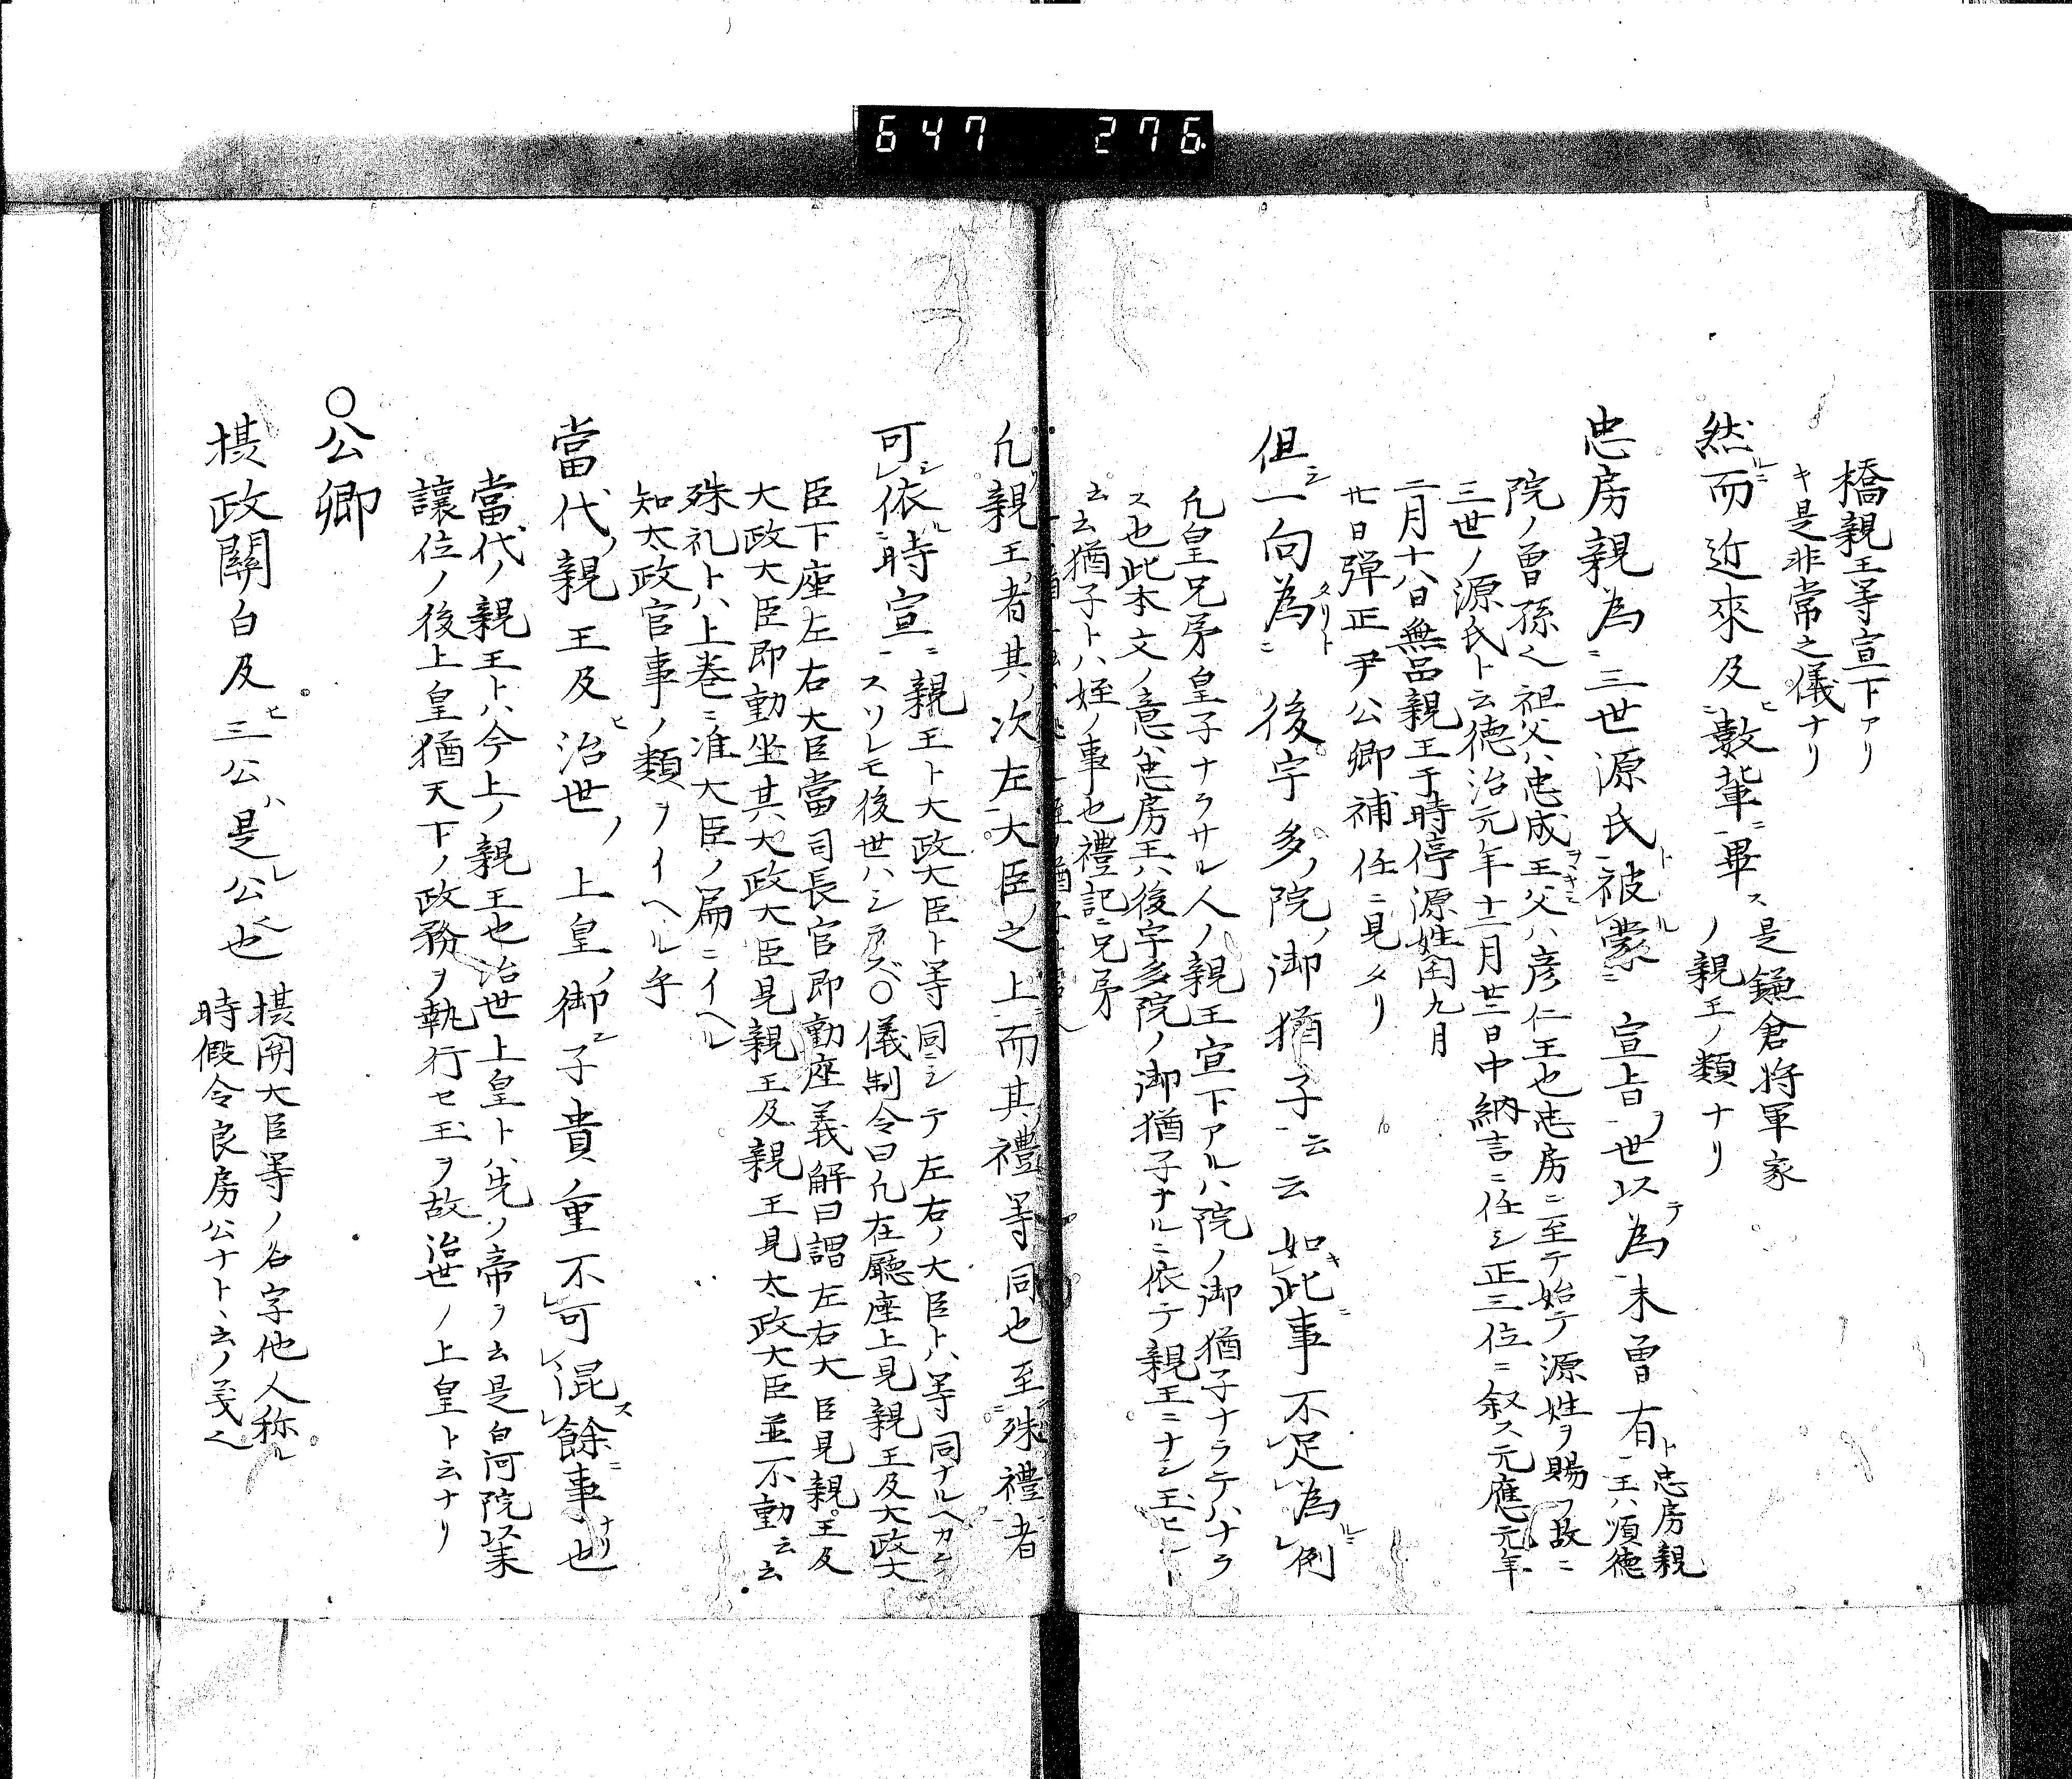 647 276
橋親王等宣下アリ
キ是非常之儀ナリ
然而近來及數輩畢
是鎌倉将軍家
ノ親王ノ類ナリ
忠房親為三世源氏被蒙宣旨世以為未曽有
忠房親
王ハ順徳
院ノ曽孫也祖父ハ忠成王父ハ彦仁王也忠房ニ至テ始テ源姓ヲ賜フ故ニ
三世ノ源氏ト云徳治元年十二月廿三日中納言ニ任シ正三位ニ叙ス元應元年
二月十八日無品親王于時停源姓同九月
廿日弾正尹公卿補任ニ見タリ
但一向為後宇多ノ院ノ御猶子云云如此事不足為例
凢皇兄弟皇子ナラサル人ノ親王宣下アルハ院ノ御猶子ナラテハナラ
ス也此本文ノ意ハ忠房王ハ後宇多院ノ御猶子ナルニ依テ親王ニナシ玉ヒシ
云云猶子トハ姪ノ事也禮記ニ兄弟
凢親王者其ノ次左大臣ノ之上而其禮等同也至殊禮者
可依時宣
親王ト大政大臣ト等同ニシテ左右ノ大臣トハ等同ナルヘカラ
スソレモ後世ハシラズ〇儀制令曰凢在廳座上見親王及大政大
臣下座左右大臣當司長官即動座義解曰謂左右大臣見親王及
大政大臣即動坐其大政大臣見親王及親王見太政大臣並不動云云
殊礼トハ上巻ニ准大臣ノ扁ニイヘル
知太政官事ノ類ヲイヘル乎
當代ノ親王及ヒ治世ノ上皇ノ御子貴ノ重不可混餘事也
當代ノ親王トハ今上ノ親王也治世上皇トハ先ノ帝ヲ云是白河院以来
讓位ノ後上皇猶天下ノ政務ヲ執行セ玉ヲ故治世ノ上皇ト云ナリ
〇公卿
摂政關白及ヒ三公ハ是レ公也
摂関大臣等ノ名字他人称ル
時假令良房公ナト、云ノ義也